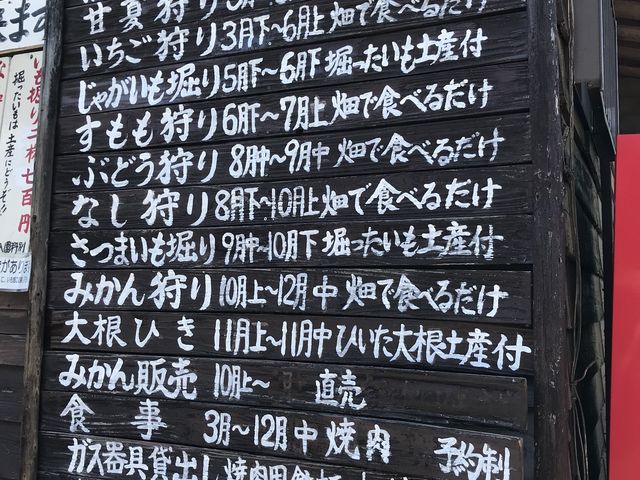 甘夏狩り
いちご狩り 3月下〜6月上 畑で食べるだけ
じゃがいも堀り 5月下〜6月下 堀ったいも土産付
すもも狩り 6月下〜7月上 畑で食べるだけ
ぶどう狩り 8月中〜9月中 畑で食べるだけ
なし狩り 8月下〜10月上 畑で食べるだけ
さつまいも堀り 9月中〜10月下 堀ったいも土産付
みかん狩り 10月上〜12月中 畑で食べるだけ
大根ひき 11月上〜11月中 ひいた大根土産付
みかん販売 10月上〜 直売
食事 3月〜12月中 焼肉 予約制
ガス器具貸出し 焼肉用
いも堀り二株七百円
堀ったいもは土産にどうぞ!!